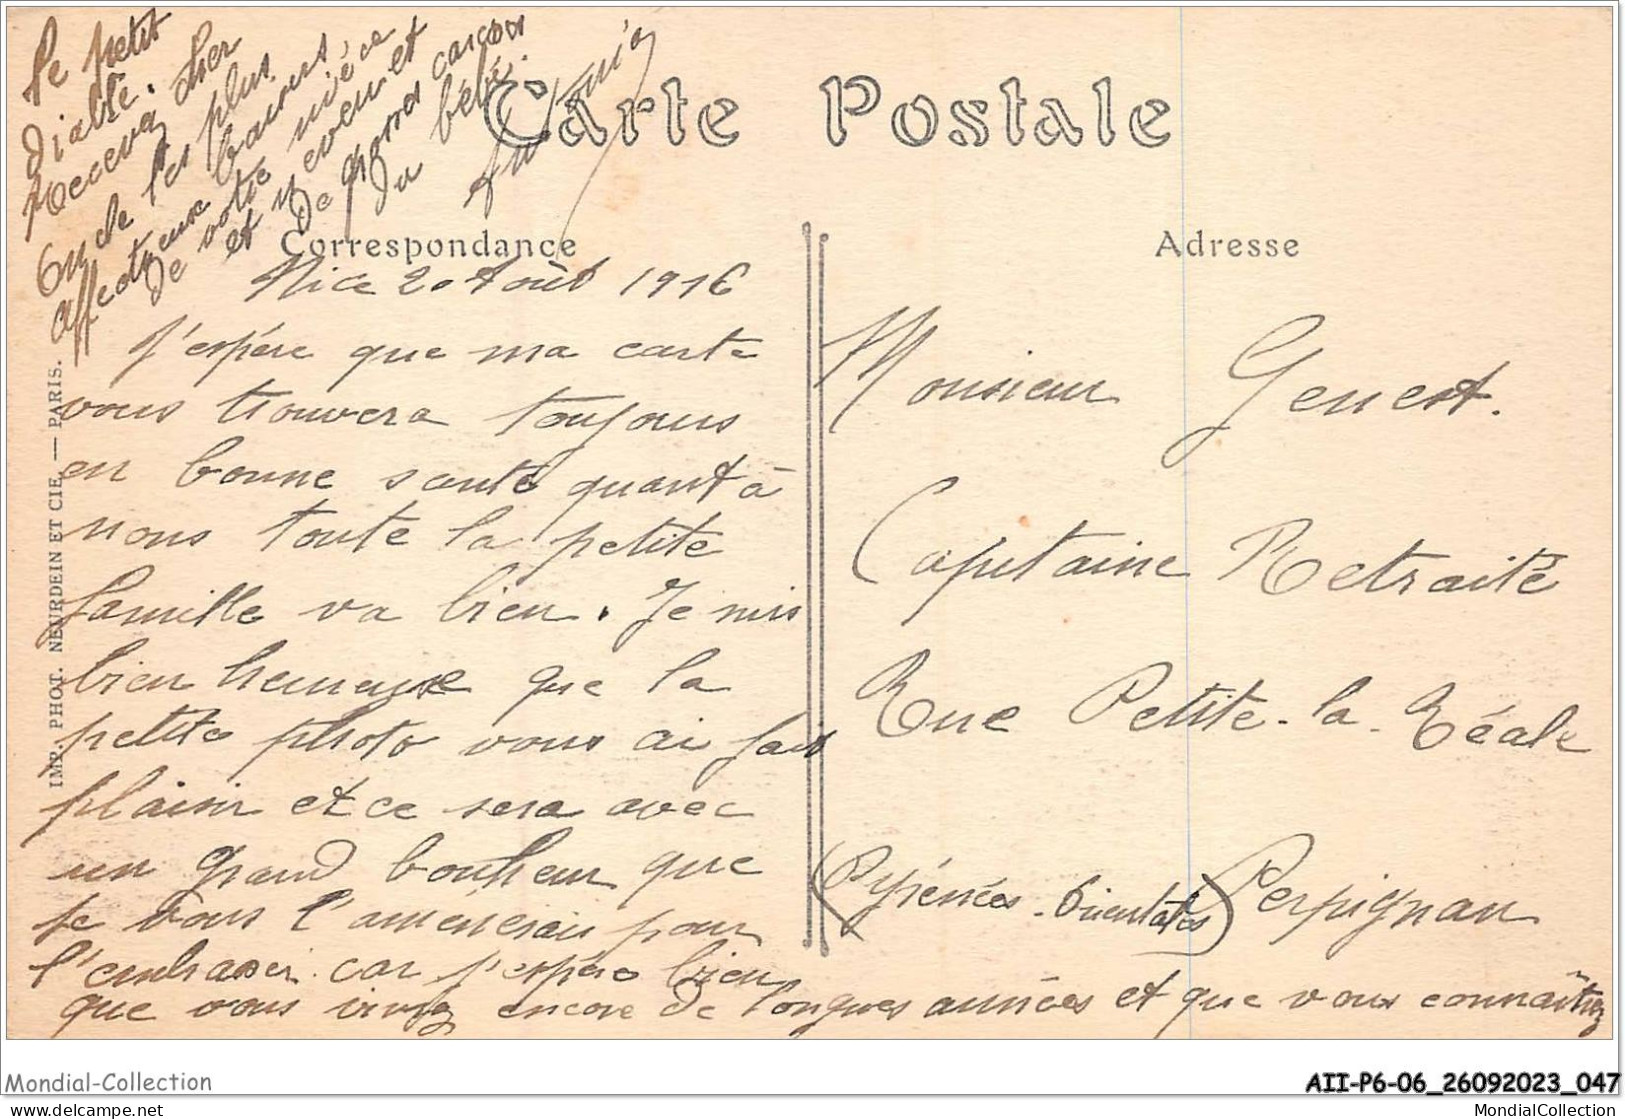 Carte Postale
Correspondance
Adresse
Nice 20 Août 1916
J'espère que ma carte
vous trouvera toujours
en bonne santé quant à
nous toute la petite
famille va bien. Je suis
bien heureuse que la
petite photo vous ai fais
plaisir et ce sera avec
un grand bonheur que
je vous l'amènerais pour
l'embrasser. car j'espère bien
que vous vivrez encore de longues années et que vous connaîtrez
le petit
diable.
Recevez cher
Oncle les plus
affectueux baisers
de votre nièce
et neveu et
de grosses caresses
du bébé.
Antonia
Monsieur Genest.
Capitaine Retraité
Rue Petite-la-Réale
Perpignan
(Pyrénées-Orientales)
IMP. PHOT. NEURDEIN ET CIE. — PARIS.
Mondial-Collection
AII-P6-06_26092023_047
delcampe.net
MondialCollection